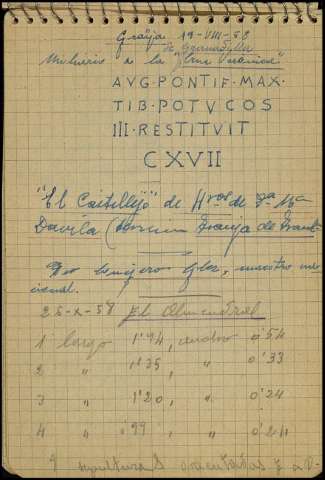 Granja 19-VIII-58
de Granadilla
Miliario de la "
AVG·PONTIF·MAX·
TIB·POT V COS
III·RESTITVIT
CXVII
"El Castillejo" de Hros de Dª Mª
Dávila (         Granja de Gran
                 , maestro na-
cional.
25-X-58 El Almendral
1 largo 1'94, ancho 0'54
2 " 1'35, " 0'33
3 " 1'20, " 0'24
4 " 0'99, " 0'24
sepulturas orientadas